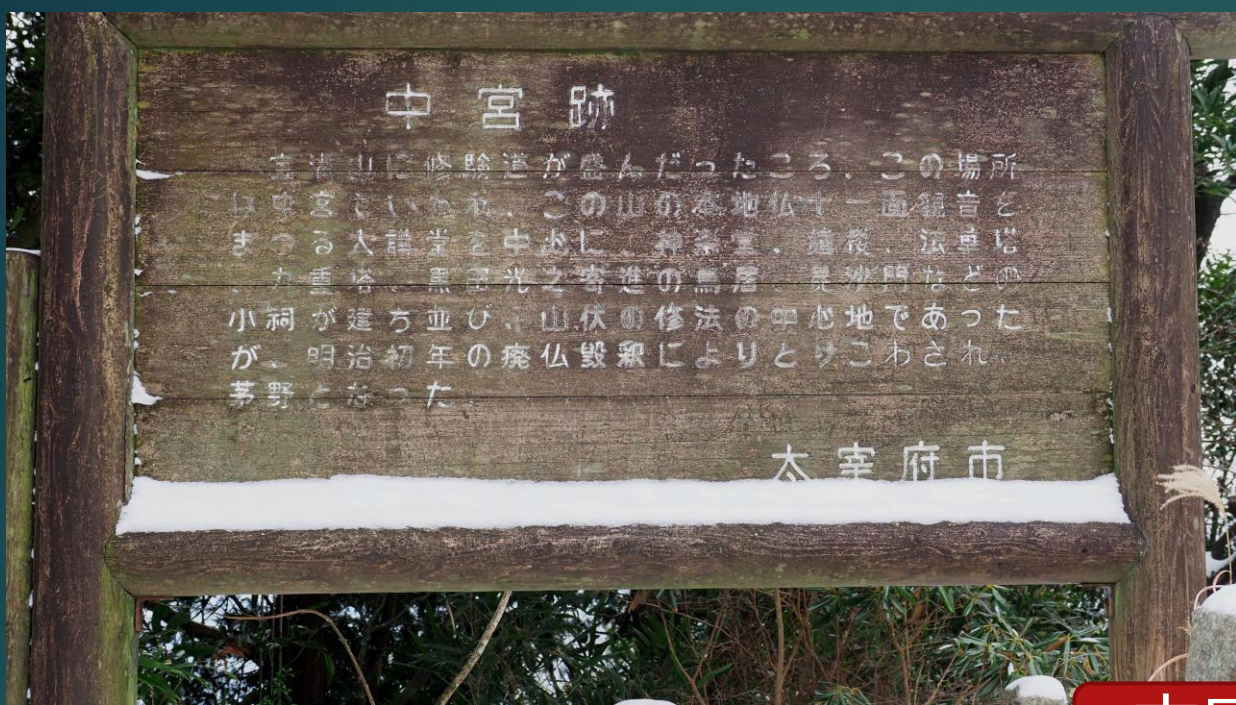 中宮跡
宝満山に修験道が盛んだったころ、この場所
は中宮といわれ、この山の本地仏十一面観音を
まつる大講堂を中心に 神楽堂、 法 塔
九重塔、黒 光之寄進の鳥居、 沙門などの
小祠が建ち並び、山伏の修法の中心地であった
が、明治初年の廃仏毀釈によりとりこわされ、
茅野となった。
太宰府市